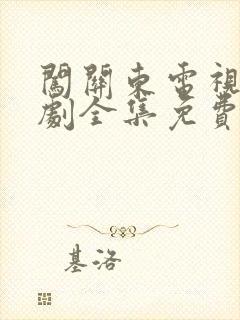 闖關東電視
劇全集免費
基洛